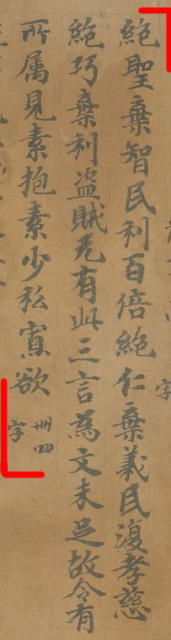 絕聖棄智民利百倍絕仁棄義民復孝慈
絕巧棄利盜賊无有此三言為文未足故令有
所属見素抱素少私寡欲 卌四字